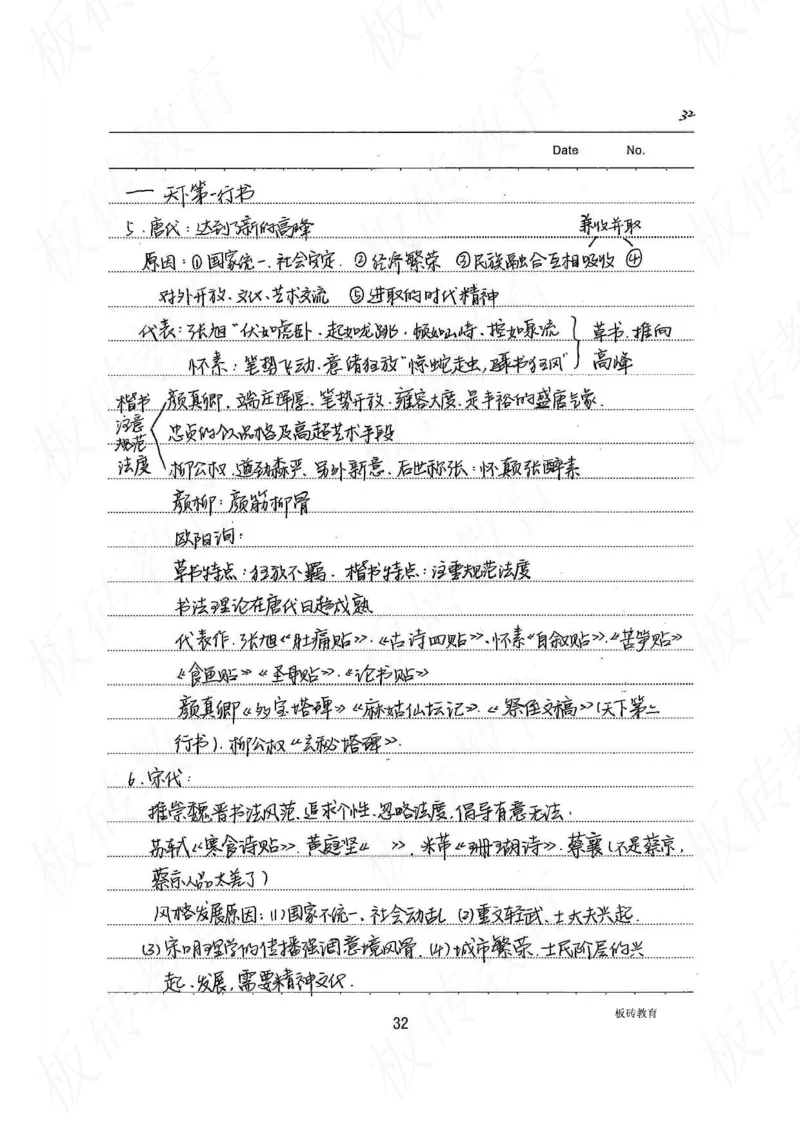 32
Date No.
一 天下第一行书
5.唐代：达到了新的高峰 兼收并取
原因：①国家统一、社会安定. ②经济繁荣 ③民族融合互相吸收 ④
对外开放、文化、艺术交流 ⑤进取的时代精神
代表：张旭"伏如虎卧、起如龙跳、顿如山峙、控如泉流
草书、推向
怀素：笔势飞动、意绪狂放"惊蛇走虫，骤书狂风"
高峰
楷书
注意
规范
法度
颜真卿、端庄浑厚、笔势开放、雍容大度、是丰裕的盛唐气象.
忠贞的 品格及高超艺术手段
柳公权、遒劲森严、另外新意、后世称张：怀颠张醉素
颜柳：颜筋柳骨
欧阳询：
草书特点：狂放不羁、楷书特点：注重规范法度
书法理论在唐代日趋成熟
代表作、张旭《肚痛贴》、《古诗四贴》、怀素《自叙贴》、《苦笋贴》
《食鱼贴》《圣母贴》、《论书贴》
颜真卿《多宝塔碑》《麻姑仙坛记》、《祭侄文稿》(天下第二
行书)、柳公权《玄秘塔碑》.
6.宋代：
推崇魏晋书法风范、追求个性、忽略法度，倡导有意无法.
苏轼《寒食诗贴》、黄庭坚《 》、米芾《珊瑚诗》、蔡襄(不是蔡京，
蔡京人品太差了)
风格发展原因：(1)国家不统一、社会动乱 (2)重文轻武、士大夫兴起.
(3)宋明理学的传播强调意境风骨、(4)城市繁荣、士民阶层的兴
起、发展，需要精神文化.
32
板砖教育
板砖教育